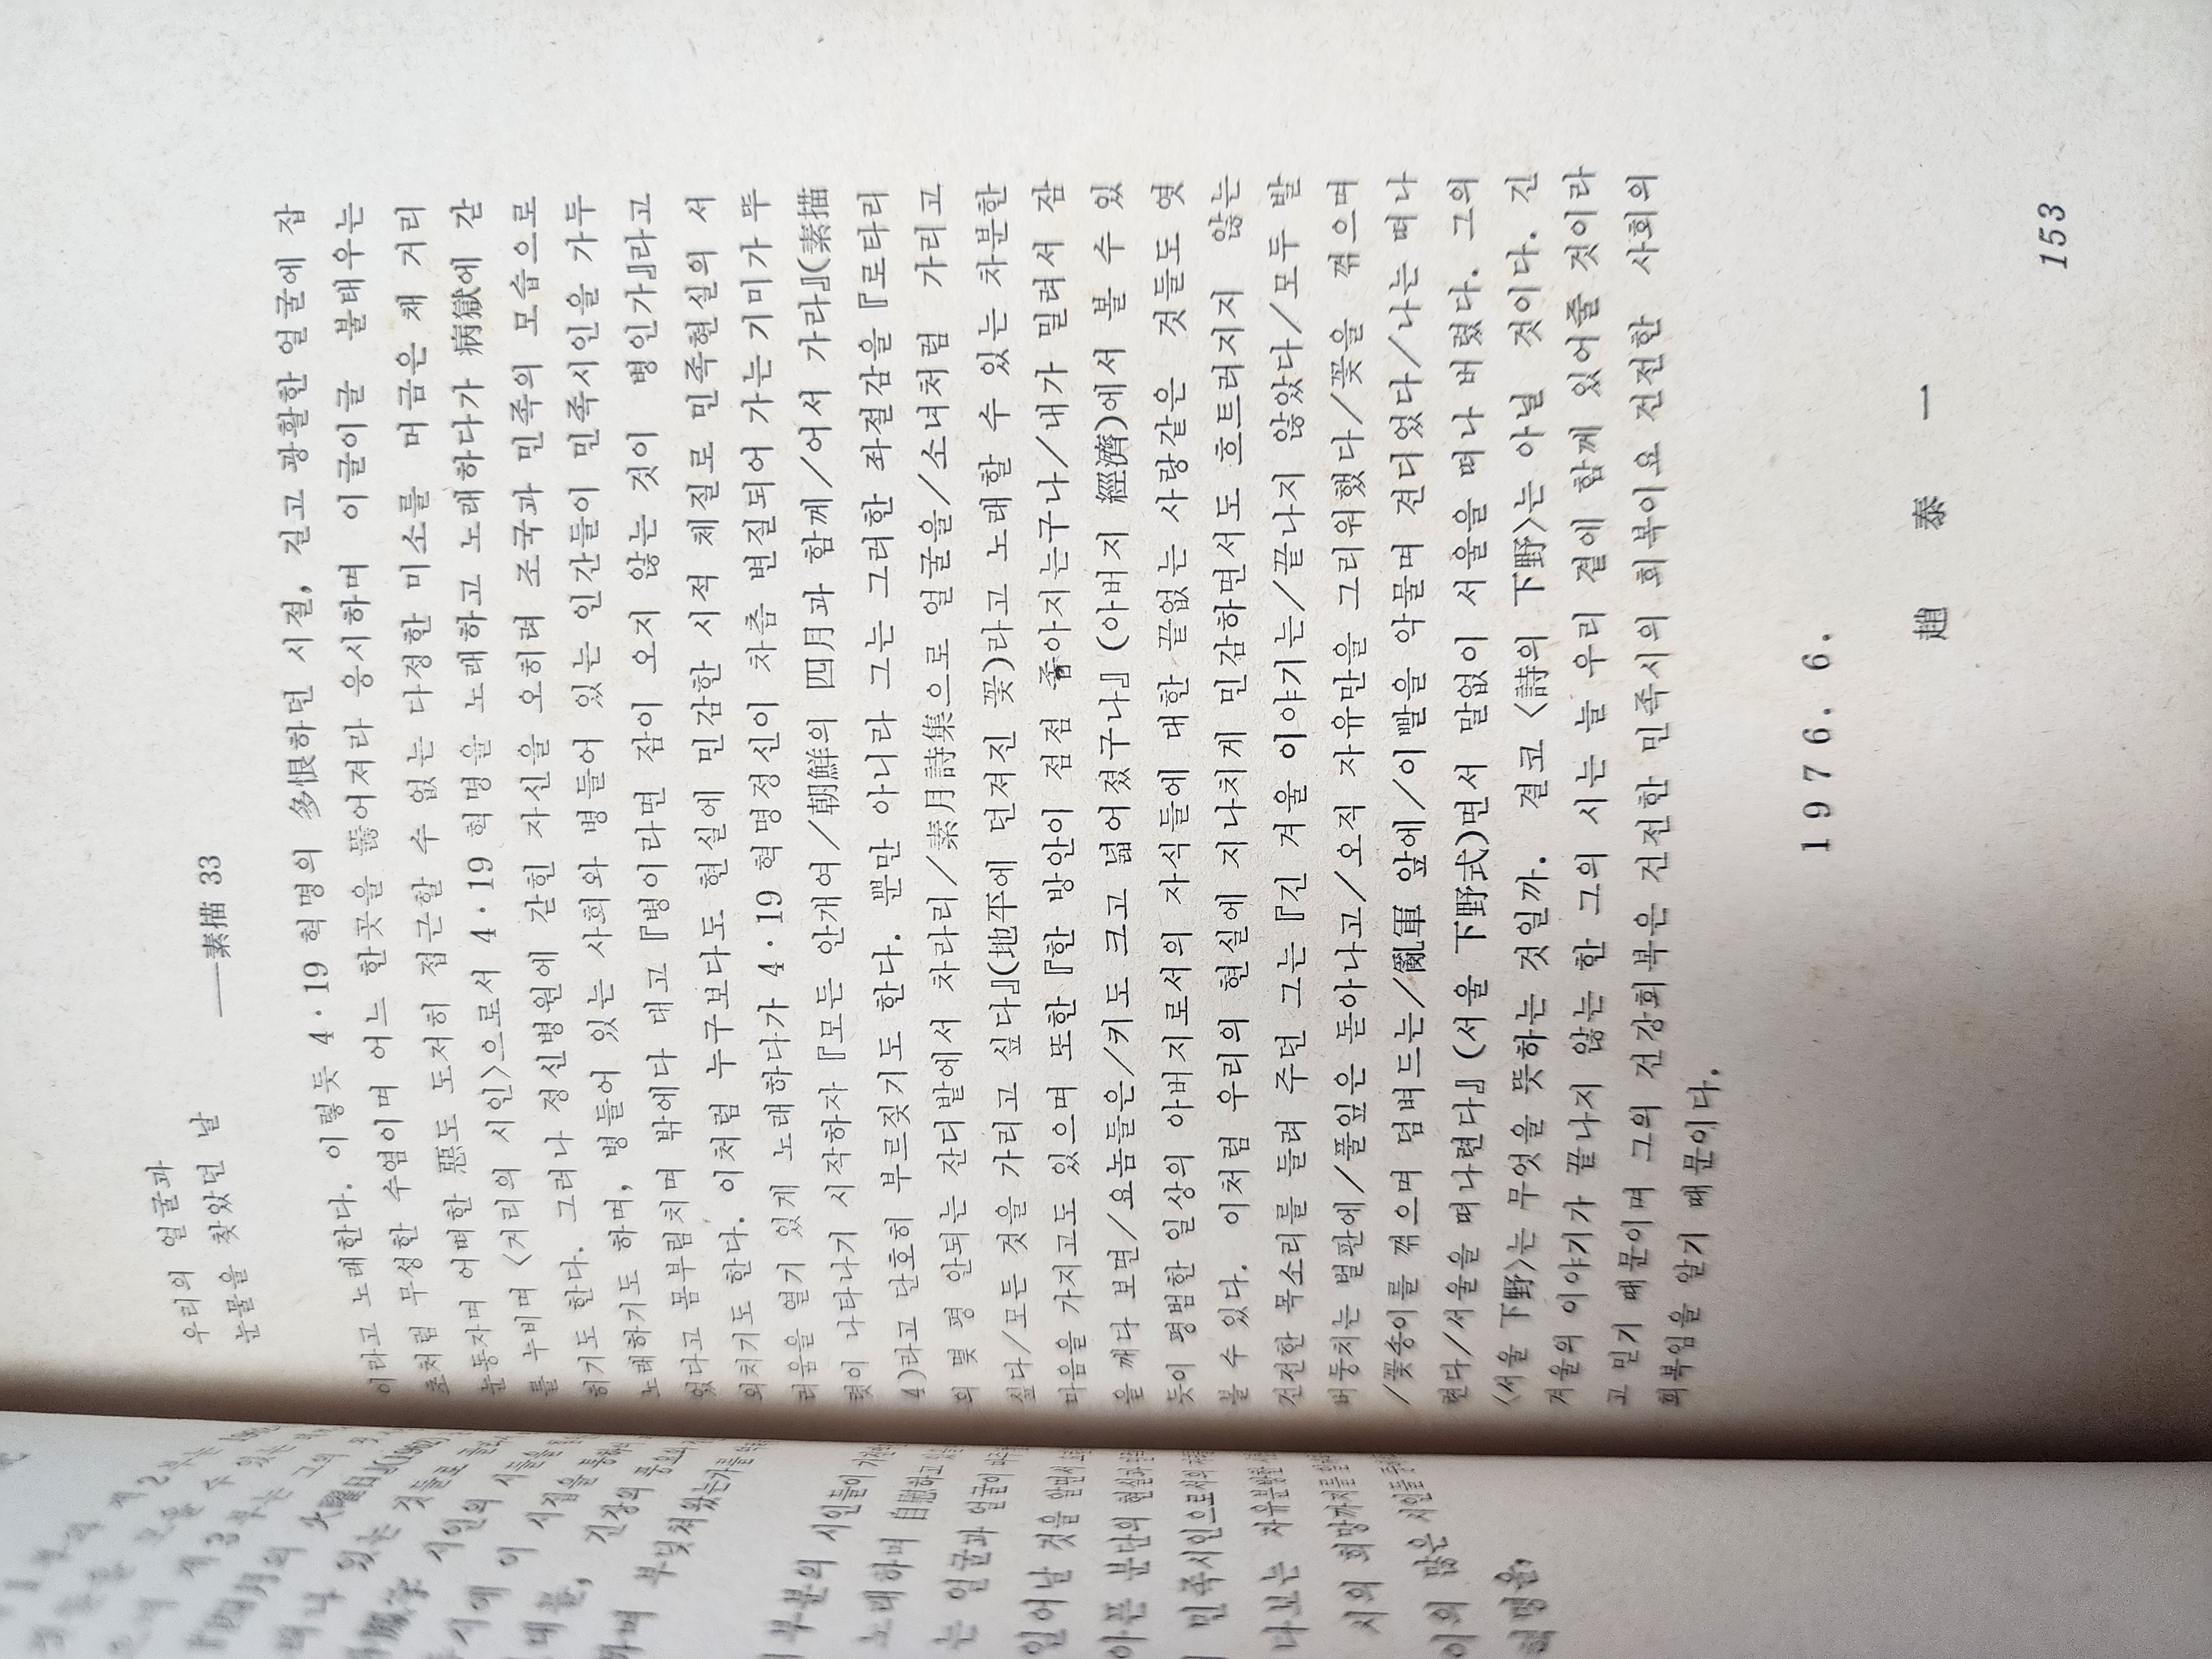 우리의 얼굴과
눈물을 찾았던 날
——素描 33
이라고 노래한다. 이렇듯 4·19 혁명의 多恨하던 시절, 길고 광활한 얼굴에 잡
초처럼 무성한 수염이며 어느 한곳을 뚫어져라 응시하며 이글이글 불태우는
눈동자며 어떠한 惡도 도저히 접근할 수 없는 다정한 미소를 머금은 채 거리
를 누비며 〈거리의 시인〉으로서 4·19 혁명을 노래하고 노래하다가 病獄에 갇
히기도 한다. 그러나 정신병원에 갇힌 자신을 오히려 조국과 민족의 모습으로
노래하기도 하며, 병들어 있는 사회와 병들어 있는 인간들이 민족시인을 가두
었다고 몸부림치며 밖에다 대고 『병이라면 잠이 오지 않는 것이 병인가』라고
외치기도 한다. 이처럼 누구보다도 현실에 민감한 시적 체질로 민족현실의 서
러움을 열기 있게 노래하다가 4·19 혁명정신이 차츰 변질되어 가는 기미가 뚜
렷이 나타나기 시작하자 『모든 안개여/朝鮮의 四月과 함께/어서 가라』(素描
4)라고 단호히 부르짖기도 한다. 뿐만 아니라 그는 그러한 좌절감을 『로타리
의 몇 평 안되는 잔디밭에서 차라리/素月詩集으로 얼굴을/소녀처럼 가리고
싶다/모든 것을 가리고 싶다』(地平에 던져진 꽃)라고 노래할 수 있는 차분한
마음을 가지고도 있으며 또한 『한 방안이 점점 좁아지는구나/내가 밀려서 잠
을 깨다 보면/요놈들은/키도 크고 넓어졌구나』 (아버지 經濟)에서 볼 수 있
듯이 평범한 일상의 아버지로서의 자식들에 대한 끝없는 사랑같은 것들도 엿
볼 수 있다. 이처럼 우리의 현실에 지나치게 민감하면서도 흐트러지지 않는
건전한 목소리를 들려 주던 그는 『긴 겨울 이야기는/끝나지 않았다/모두 발
버둥치는 벌판에/풀잎은 돋아나고/오직 자유만을 그리워했다/꽃을 꺾으며
/꽃송이를 꺾으며 덤벼드는/亂軍 앞에/이빨을 악물며 견디었다/나는 떠나
련다/서울을 떠나련다』 (서울 下野式)면서 말없이 서울을 떠나 버렸다. 그의
〈서울 下野〉는 무엇을 뜻하는 것일까. 결코 〈詩의 下野〉는 아닐 것이다. 긴
겨울의 이야기가 끝나지 않는 한 그의 시는 늘 우리 곁에 함께 있어줄 것이라
고 믿기 때문이며 그의 건강회복은 건전한 민족시의 회복이요 건전한 사회의
회복임을 알기 때문이다.
1976. 6.
趙 泰 一
153
부분의 시인들이
노래하며 自慰하고
는 얼굴과 얼굴이
일어날 것을 알면서
아픈 분단의 현실과
민족시인으로서의
다보는 자유분방한
시의 희망까지를
이의 많은 시인들
혁명을,